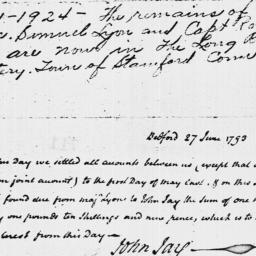 1-1924- The remains of
Simuel Lyon and Capt
are now in The Long
tery. Town of Stamford Conn
Bedford 27 June 1793
Day we settled all accounts between us, (except that
on joint account) to the first Day of may last. & on this
found due from majr Lyon to John Jay the sum of one
y one pounds ten Shillings and nine pence, which is to
terest from this Day —
John Jay